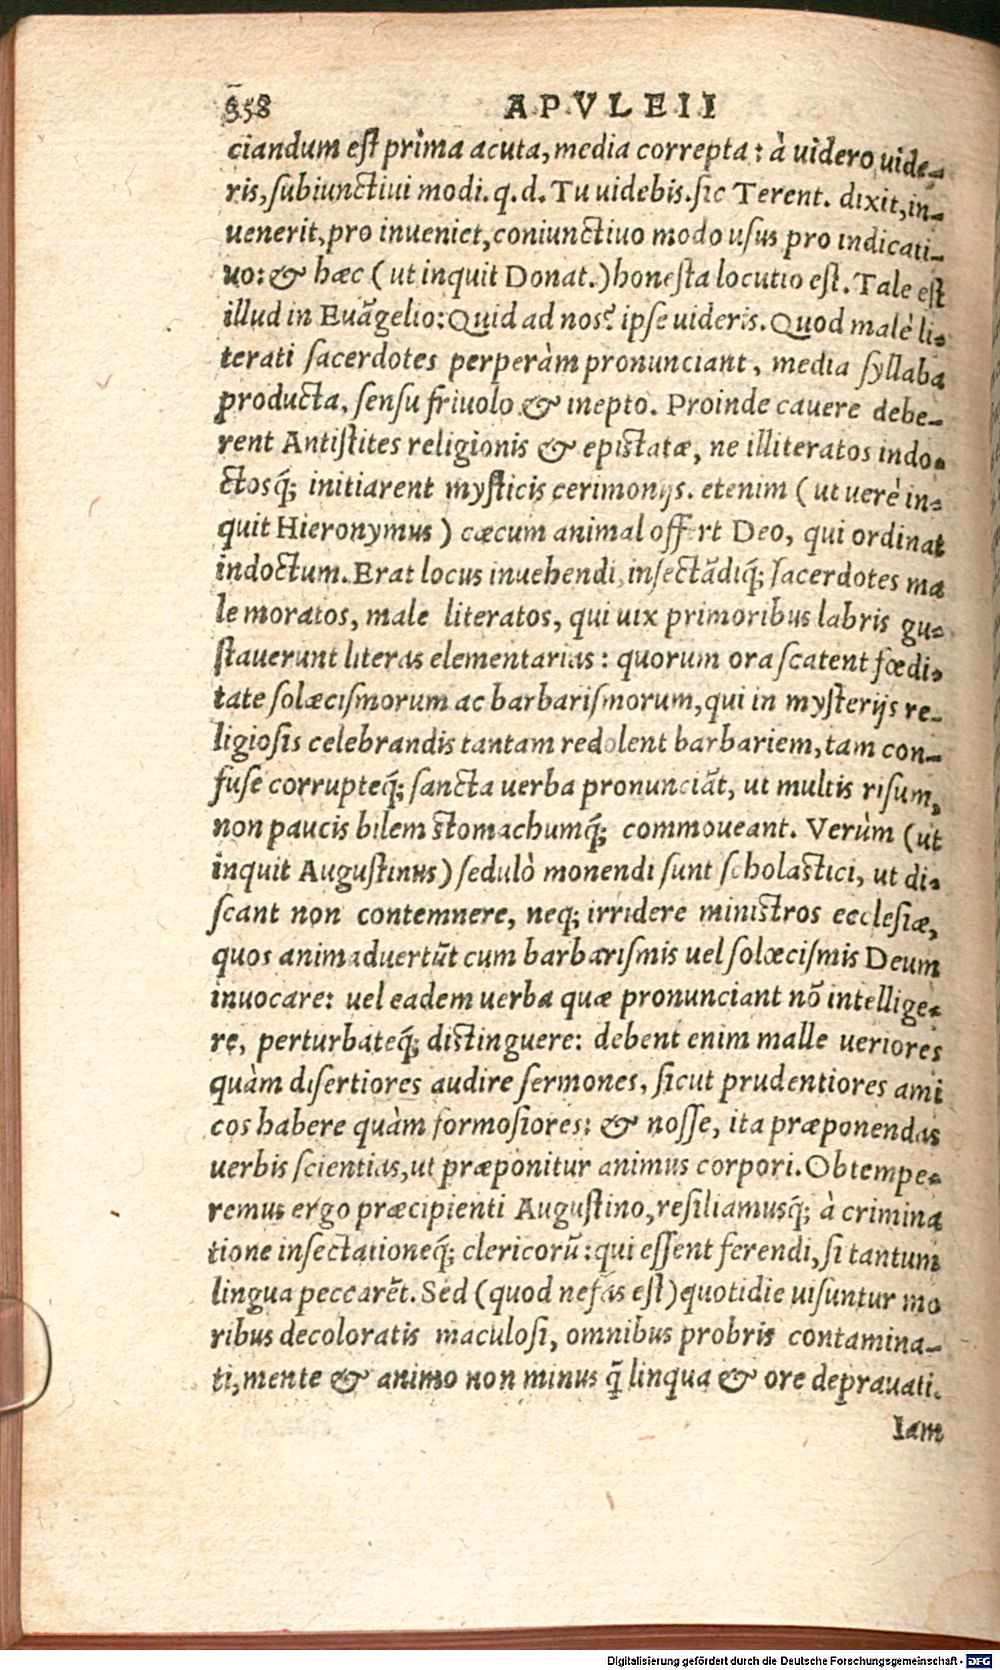 358 APVLEII
ciandum est prima acuta, media correpta: à uidero uide-
ris, subiunctiui modi. q.d. Tu uidebis. sic Terent. dixit, in-
uenerit, pro inueniet, coniunctiuo modo usus pro indicati-
uo: & hæc (ut inquit Donat.) honesta locutio est. Tale est
illud in Euãgelio: Quid ad nos? ipse uideris. Quod malè li-
terati sacerdotes perperàm pronunciant, media syllaba
producta, sensu friuolo & inepto. Proinde cauere debe-
rent Antistites religionis & epistatæ, ne illiteratos indo-
ctosq́; initiarent mysticis cerimonijs. etenim (ut uerè in-
quit Hieronymus) cæcum animal offert Deo, qui ordinat
indoctum. Erat locus inuehendi, insectãdiq́; sacerdotes ma
le moratos, male literatos, qui uix primoribus labris gu-
stauerunt literas elementarias: quorum ora scatent fœdi-
tate solæcismorum ac barbarismorum, qui in mysterijs re-
ligiosis celebrandis tantam redolent barbariem, tam con-
fuse corrupteq́; sancta uerba pronunciãt, ut multis risum,
non paucis bilem stomachumq́; commoueant. Verùm (ut
inquit Augustinus) sedulò monendi sunt scholastici, ut di-
scant non contemnere, neq; irridere ministros ecclesiæ,
quos animaduertũt cum barbarismis uel solœcismis Deum
inuocare: uel eadem uerba quæ pronunciant nõ intellige-
re, perturbateq́; distinguere: debent enim malle ueriores
quàm disertiores audire sermones, sicut prudentiores ami
cos habere quàm formosiores: & nosse, ita præponendas
uerbis scientias, ut præponitur animus corpori. Obtempe-
remus ergo præcipienti Augustino, resiliamusq́; à crimina
tione insectationeq́; clericorũ: qui essent ferendi, si tantum
lingua peccarẽt. Sed (quod nefas est) quotidie uisuntur mo
ribus decoloratis maculosi, omnibus probris contamina-
ti, mente & animo non minus q̃ linqua & ore deprauati.
Iam
Digitalisierung gefördert durch die Deutsche Forschungsgemeinschaft - DFG